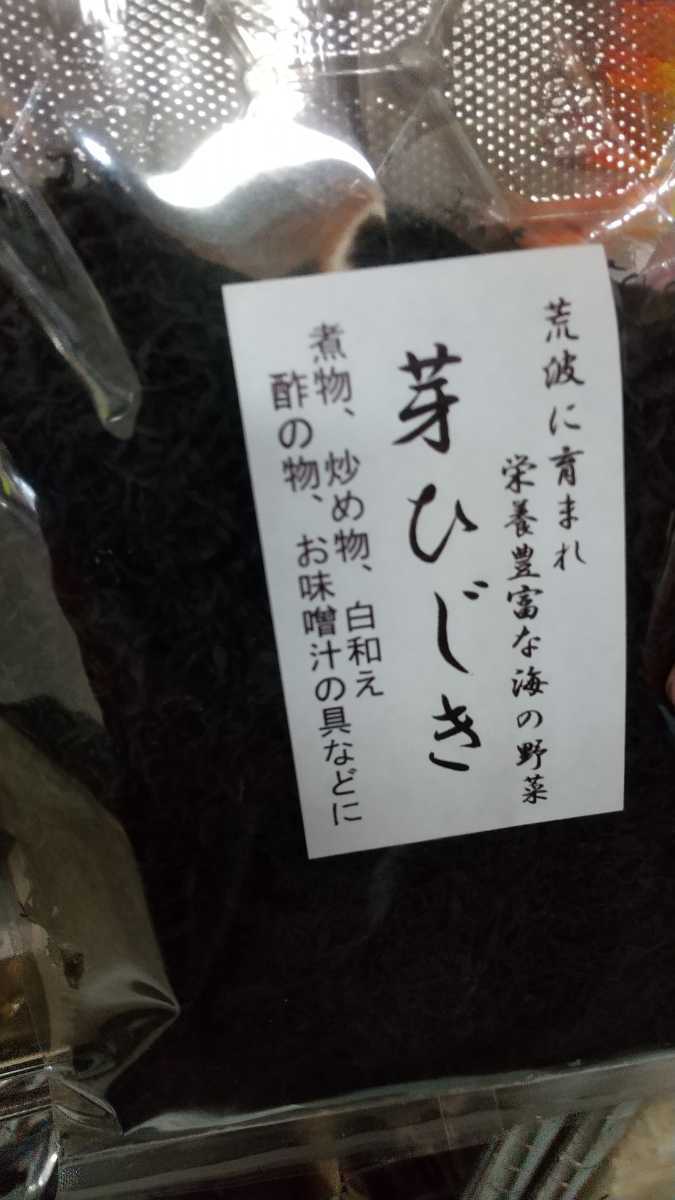 荒波に育まれ
栄養豊富な海の野菜
芽ひじき
煮物、炒め物、白和え
酢の物、お味噌汁の具などに